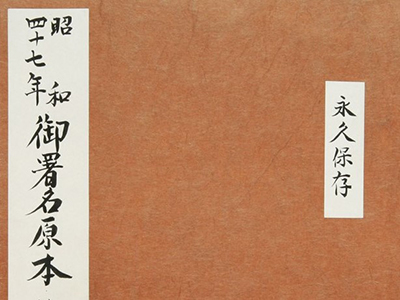 昭和
四十七年
御署名原本
永久保存